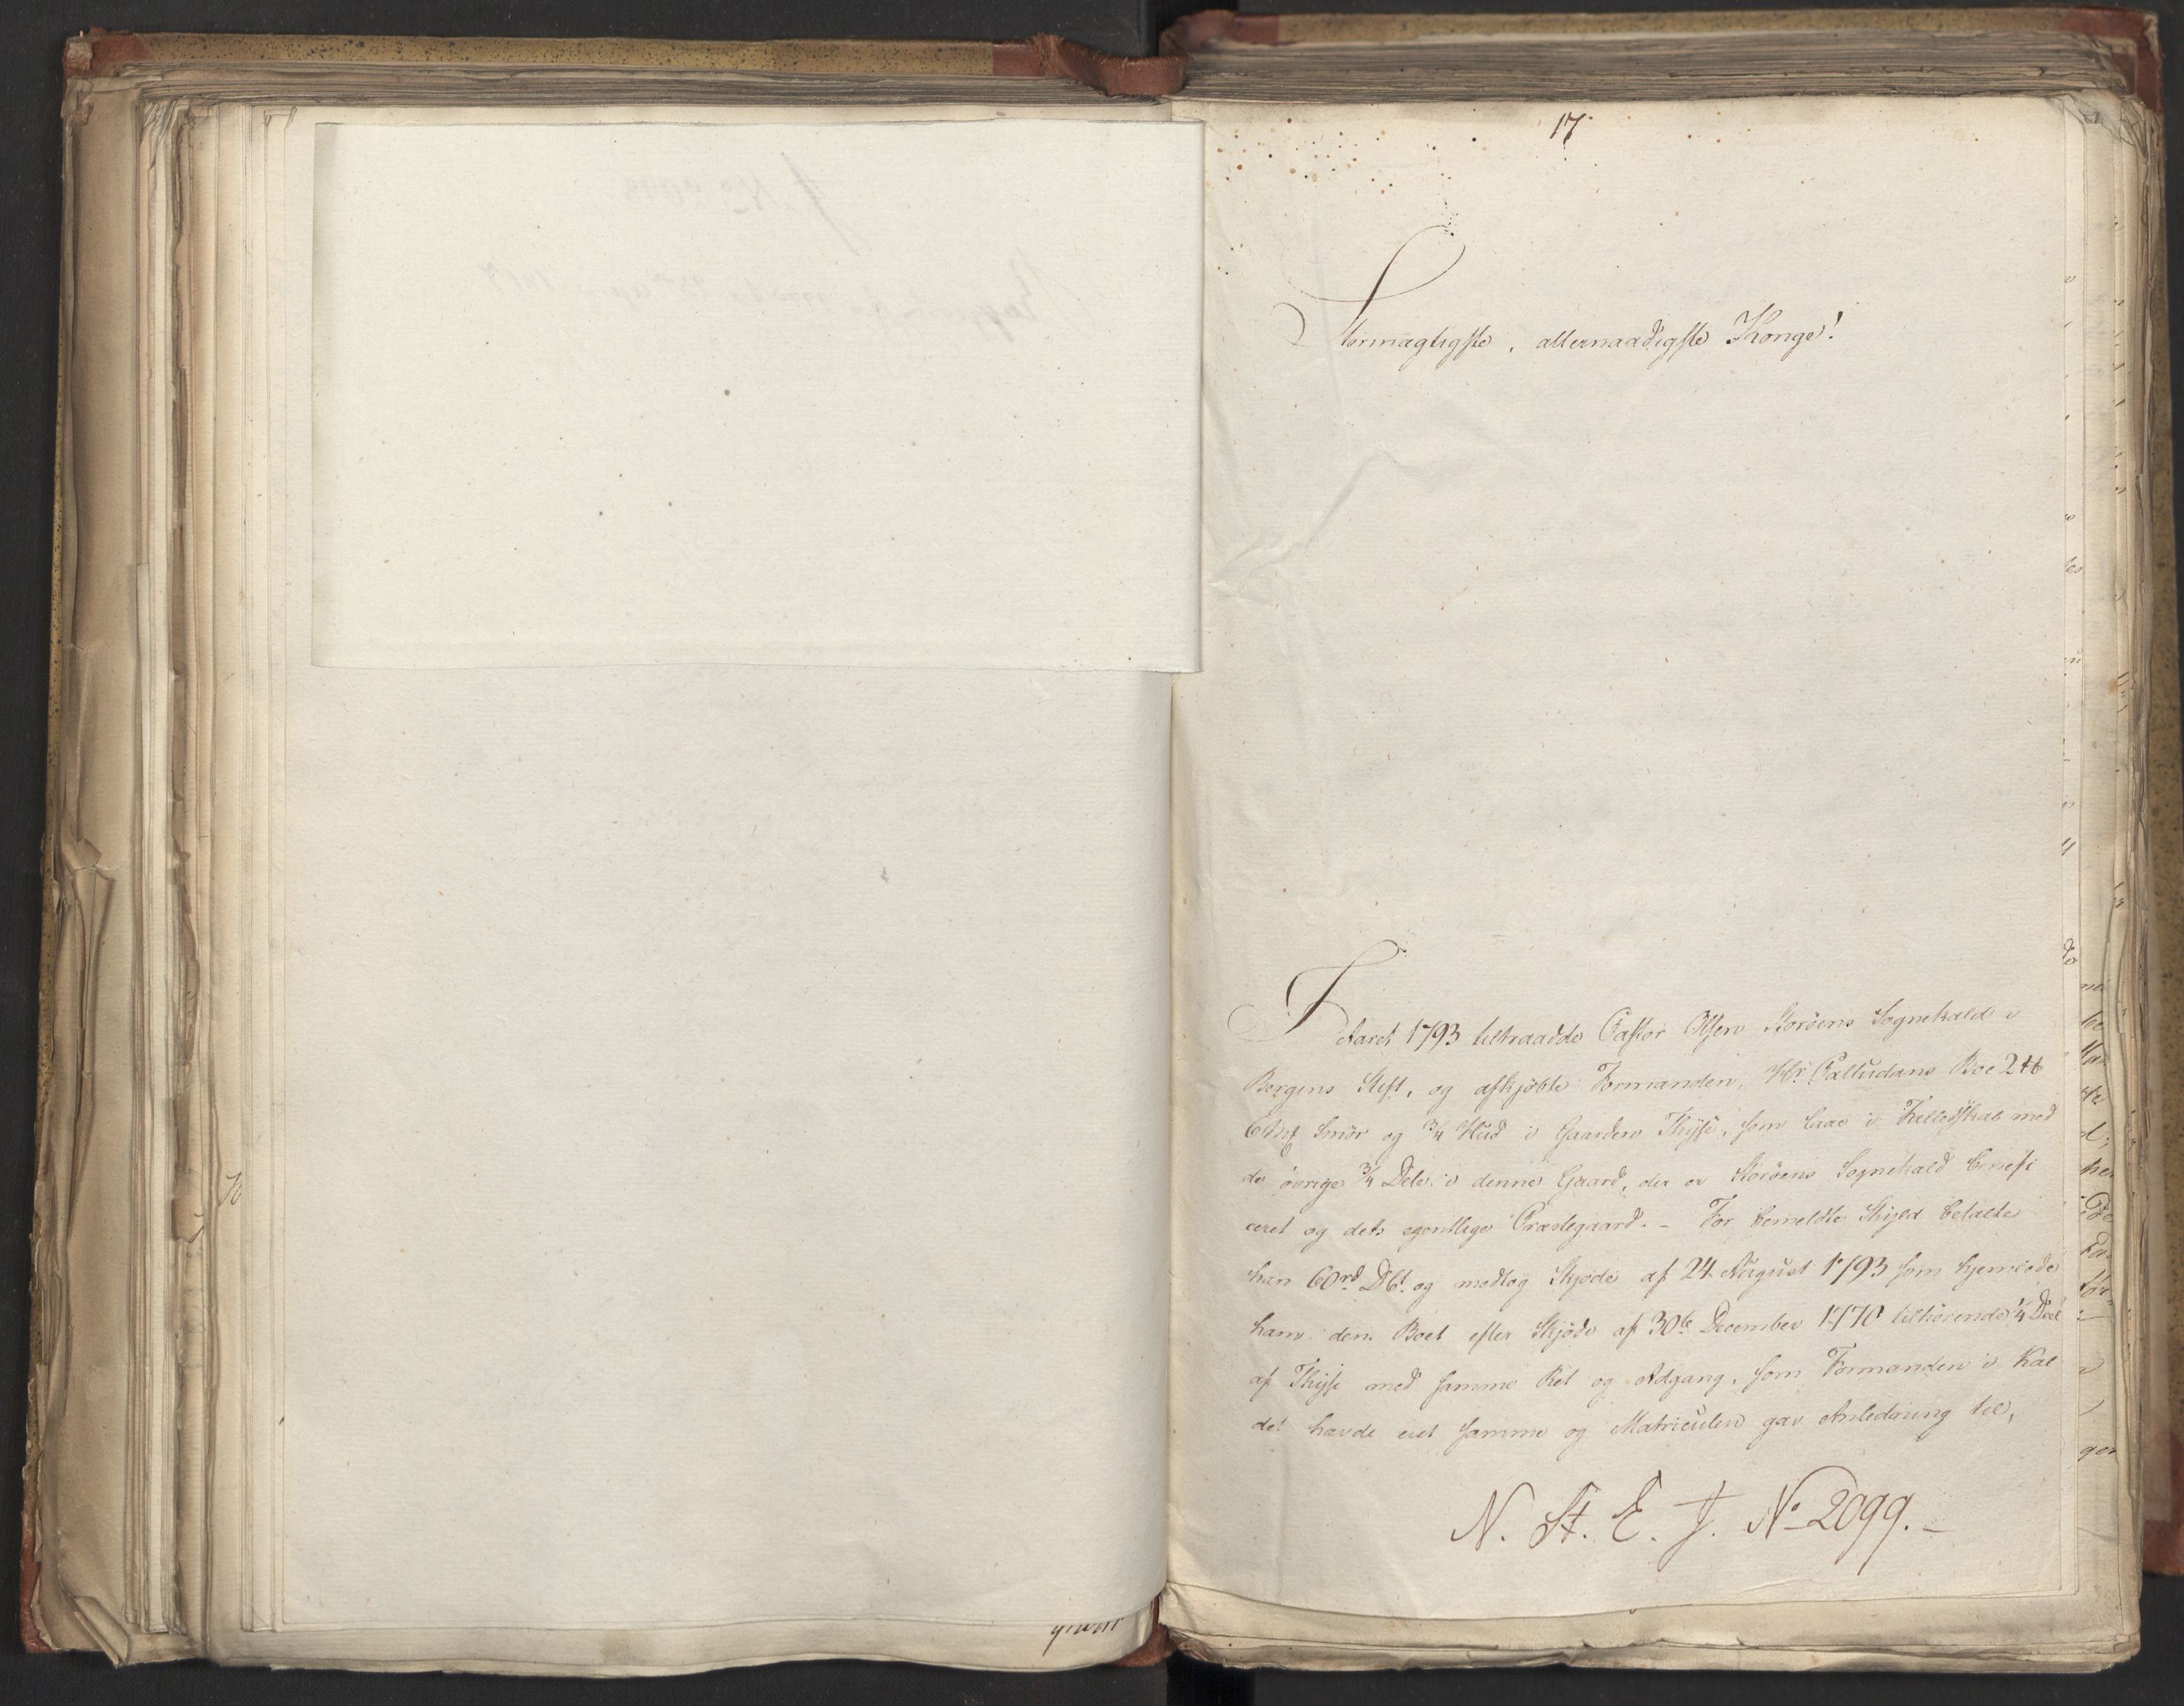 17
Stormægtigste, allernaadigste Konge!
I
Aaret 1793 tiltraadde Pastor Olsen Storöens Sognekald i
Bergens Stift, og afkjøbte Formanden, Hr. Palludans Boe 2
6 Smör og 3/4 Hud i Gaarden Thyse, som laae i Fælledskab med
de övrige 3/4 Dele i denne Gaard, der er Storöens Sognekald benefi
ceret og dets egentlige Præstegaard. - For bemeldte Skyld betalte
han 60 rd D.Ct. og modtog Skjøde af 24 August 1793 som hjemlede
ham den Boet efter Skjöde af 30te December 1770 tilhörende 1/4 Deel
af Thyse med samme Ret og Adgang, som Formanden i Kal
det havde eiet samme og Matriculen gav Anledning til,
N. St. E. J. No 2099. -